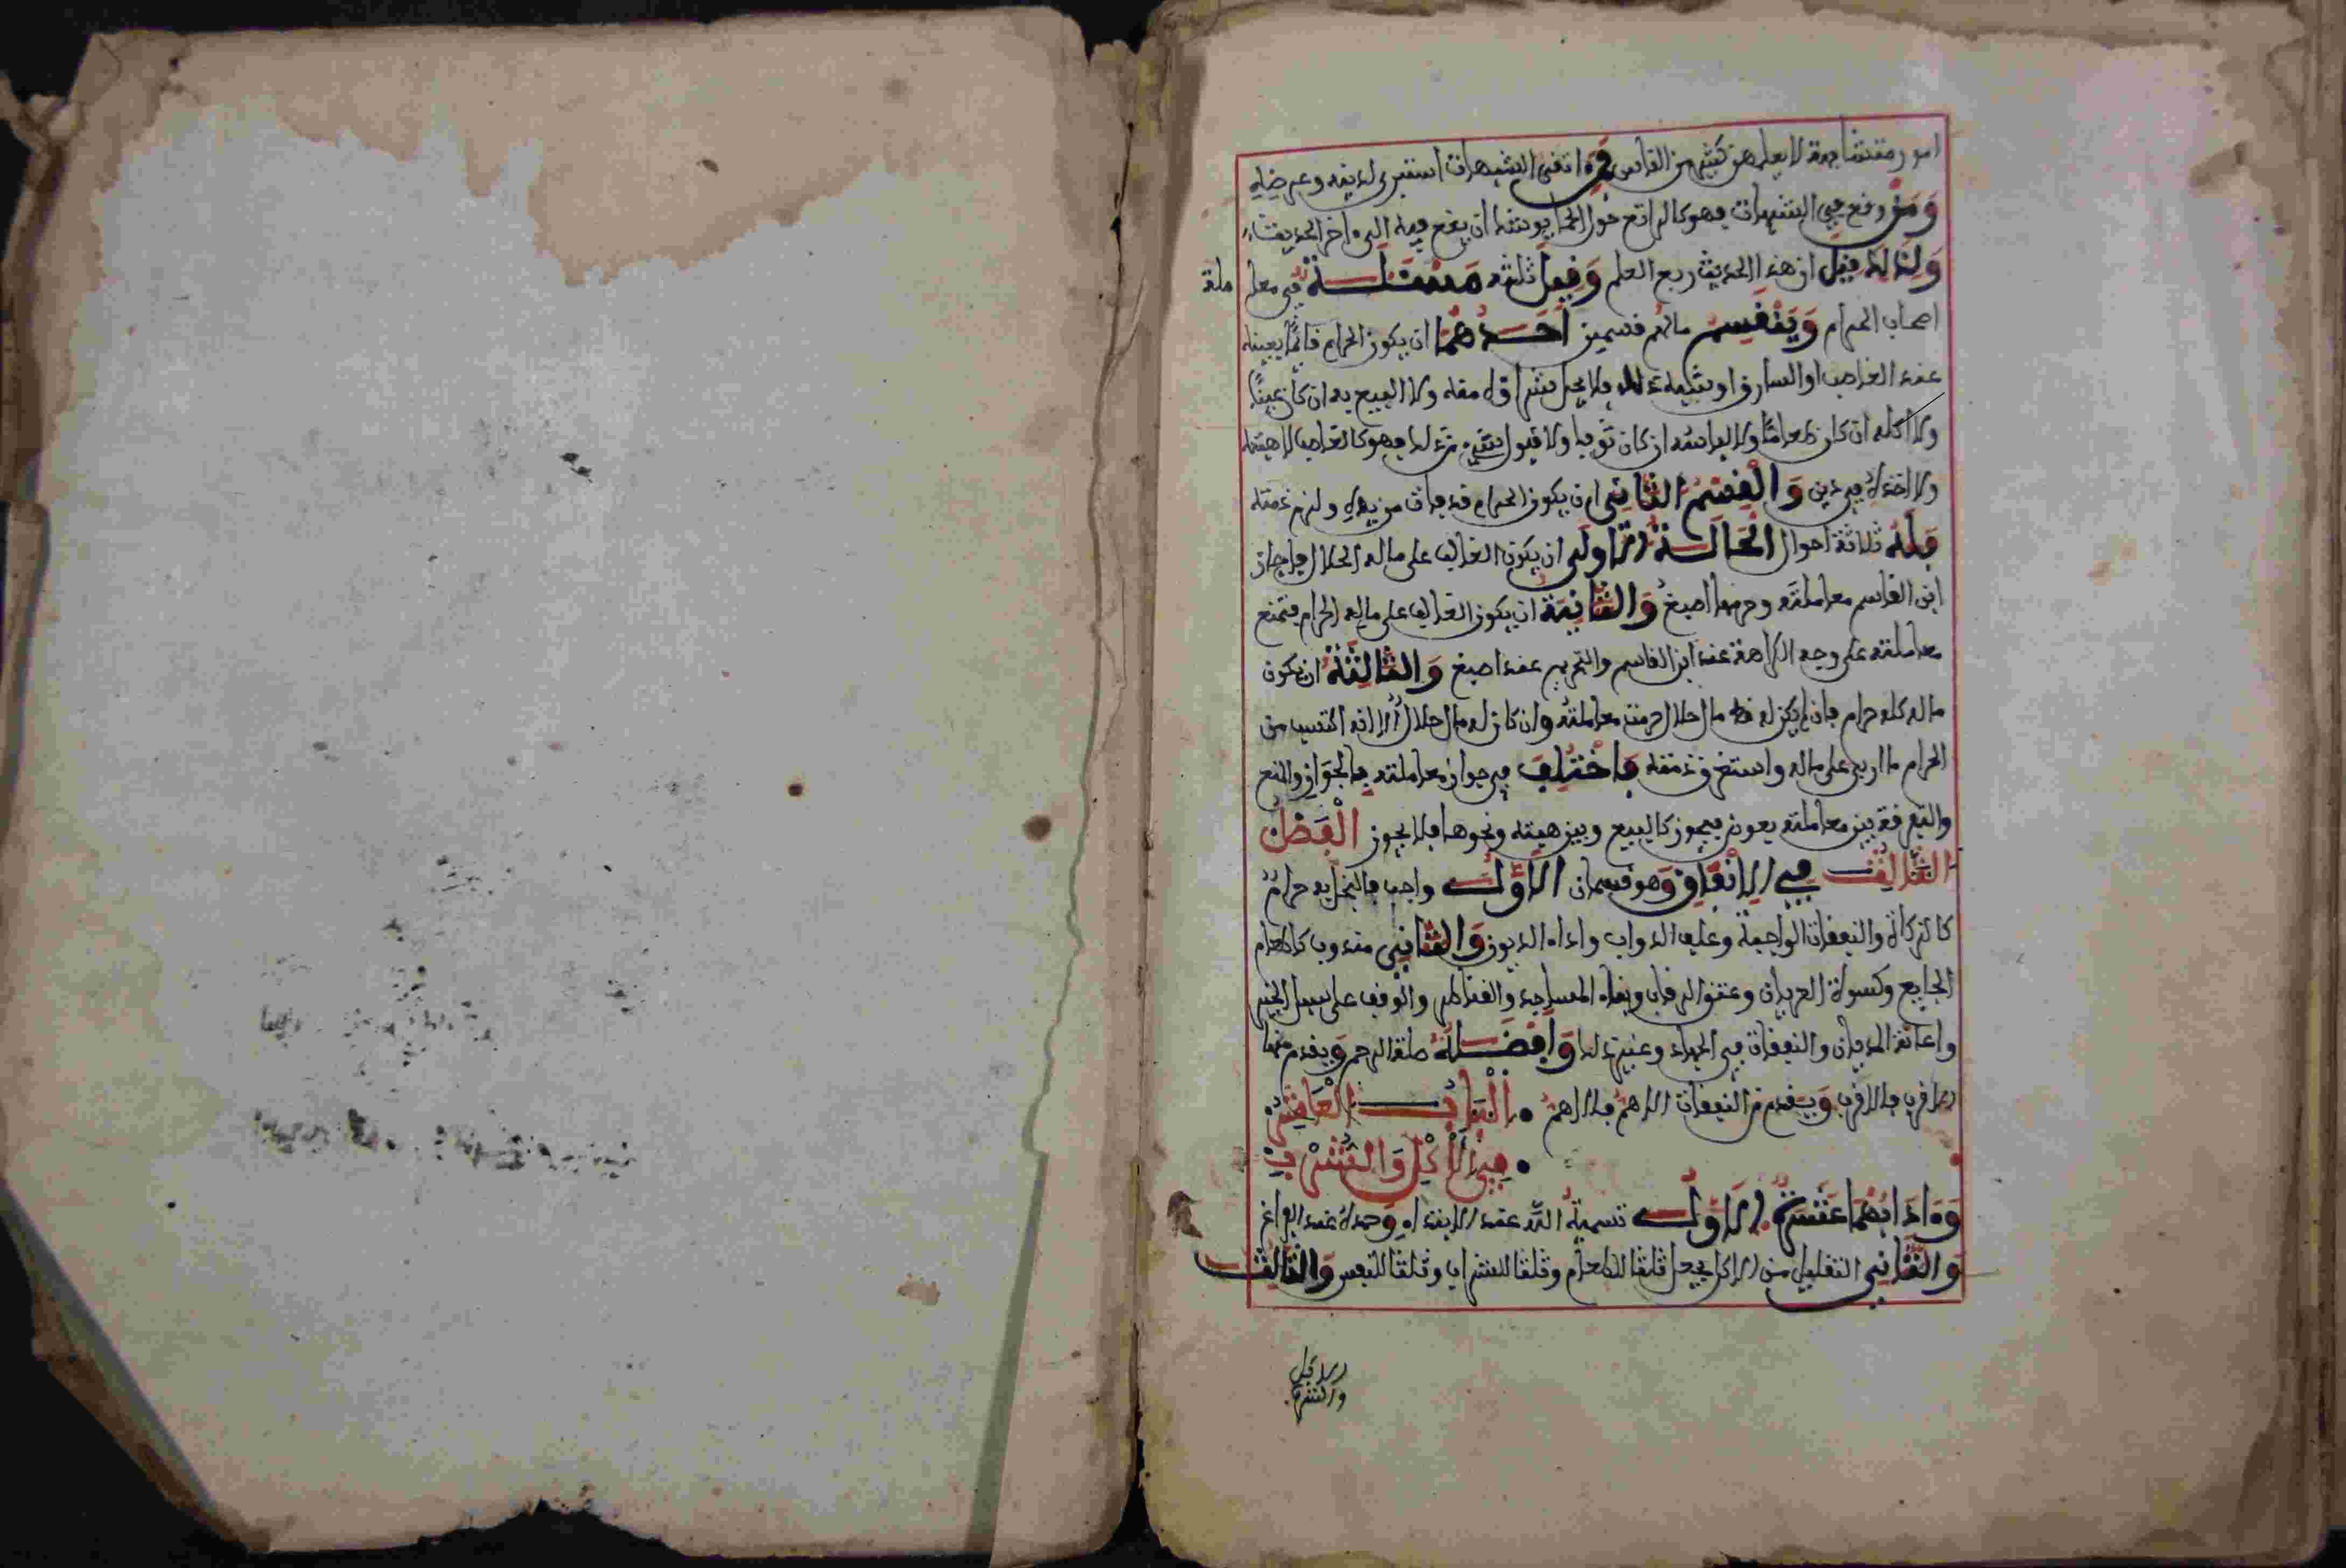 امور متشابهة لا يعلمهن كثير من الناس فمن اتقى الشبهات استبرى لدينه وعرضه
ومن وقع في الشبهات فهو كالراتع حول الحما يوشك ان يقع فيه الى اخر الحديث
ولذلك قيل ان هذا الحديث ربع العلم وقيل ثلثه مسئلة في معا ملة
اصحاب الحرام وينقسم مالهم قسمين احدهما ان يكون الحرام قائما بعينه
عند الغاصب او السارق او شبه ذلك فلا يحل شراؤه منه ولا البيع به ان كان عينا
ولا اكله ان كان طعاما ولا لباسه ان كان ثوبا ولا قبول شيء من ذلك فهو كالغاصب لا هبته
ولا اخذه في دين والقسم الثاني ان يكون الحرام قد فات من يده ولزم ذمته
فله ثلاثة احوال الحالة الاولى ان يكون الغالب على ماله الحلال فاجاز
ابن القاسم معاملته وحرمها اصبغ والثانية ان يكون الغالب على ماله الحرام فتمنع
معاملته على وجه الكراهة عند ابن القاسم والتحريم عند اصبغ والثالثة ان يكون
ماله كله حرام فان لم يكن له قط مال حلال حرمت معاملته وان كان له مال حلال الا انه اكتسب من
الحرام ما اربى على ماله واستغرق ذمته فاختلف في جواز معاملته بالجواز والمنع
والتفرقة بين معاملته بعوض فيجوز كالبيع وبين هبته ونحوها فلا يجوز الفصل
الثالث في الانفاق وهو قسمان الاول واجب فالبخل به حرام
كالزكاة والنفقات الواجبة وعلف الدواب واداء الديون والثاني مندوب كاطعام
الجايع وكسوة العريان وعتق الرقاب وبناء المساجد والقناطر والوقف على سبيل الخير
واعانة المديان والنفقات في الجهاد وغير ذلك وافضله صلة الرحم ويقدم منها
الاقرب فالاقرب ويقدم من النفقات الاهم فالاهم . الباب العاشر
. في الاكل والشرب
وءادابهما عشرة الاول تسمية الله عند الابتداء وحمده عند الفراغ
والثاني التقليل من الاكل فيجعل ثلثا للطعام وثلثا للشراب وثلثا للنفس والثالث
الاكل
والشرب